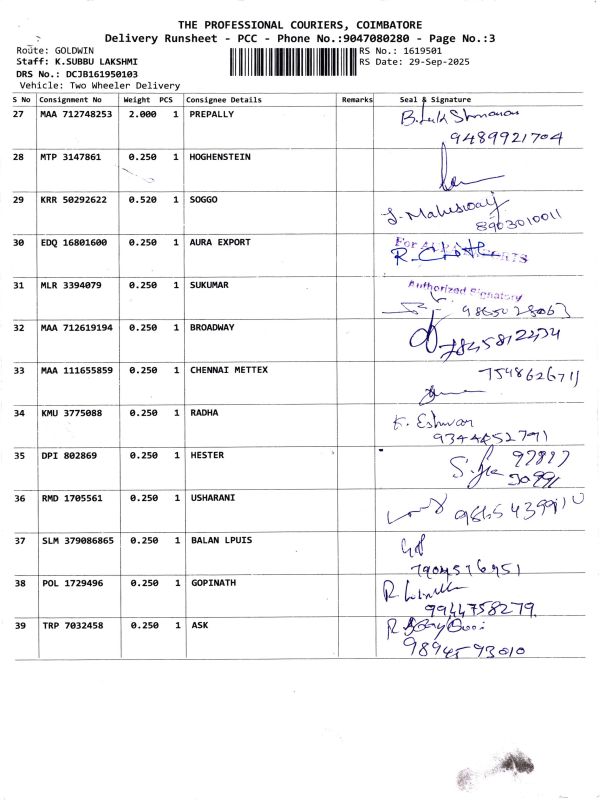 THE PROFESSIONAL COURIERS, COIMBATORE
Delivery Runsheet - PCC - Phone No.:9047080280 - Page No.:3
Route: GOLDWIN
Staff: K.SUBBU LAKSHMI
DRS No.: DCJB161950103
Vehicle: Two Wheeler Delivery
RS No.: 1619501
RS Date: 29-Sep-2025
S No Consignment No Weight PCS Consignee Details Remarks Seal & Signature
27 MAA 712748253 2.000 1 PREPALLY
9489921704
28 MTP 3147861 0.250 1 HOGHENSTEIN
29 KRR 50292622 0.520 1 SOGGO J. Maheswary
8903010011
30 EDQ 16801600 0.250 1 AURA EXPORT For
31 MLR 3394079 0.250 1 SUKUMAR Authorized Signatory
9865028063
32 MAA 712619194 0.250 1 BROADWAY
33 MAA 111655859 0.250 1 CHENNAI METTEX 7548626711
34 KMU 3775088 0.250 1 RADHA K. Eshwar
9344452791
35 DPI 802869 0.250 1 HESTER
36 RMD 1705561 0.250 1 USHARANI
37 SLM 379086865 0.250 1 BALAN LPUIS
7904516951
38 POL 1729496 0.250 1 GOPINATH
9944758279
39 TRP 7032458 0.250 1 ASK
9894593010